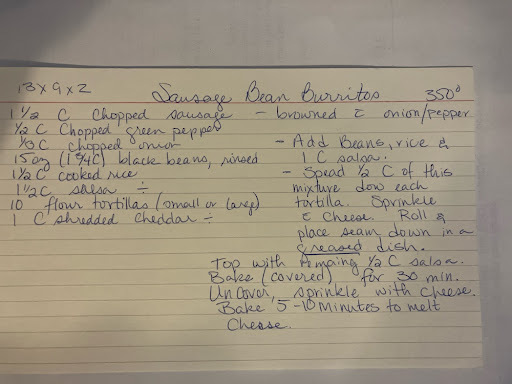 13 x 9 x 2 Sausage Bean Burritos 350°
1 1/2 C chopped sausage - browned c onion/pepper.
1/2 C Chopped green pepper
1/3 C chopped onion - Add Beans, rice &
15 oz (1 3/4 C) black beans, rinsed 1 C salsa.
1 1/2 C cooked rice - Spead 1/2 C of this
1 1/2 C salsa ÷ mixture dow each
10 flour tortillas (small or large) tortilla. Sprinkle
1 C shredded cheddar ÷ c cheese. Roll &
place seam down in a
greased dish.
Top with remaing 1/2 C salsa.
Bake (covered) for 30 min.
Uncover, sprinkle with cheese.
Bake 5-10 minutes to melt
Cheese.